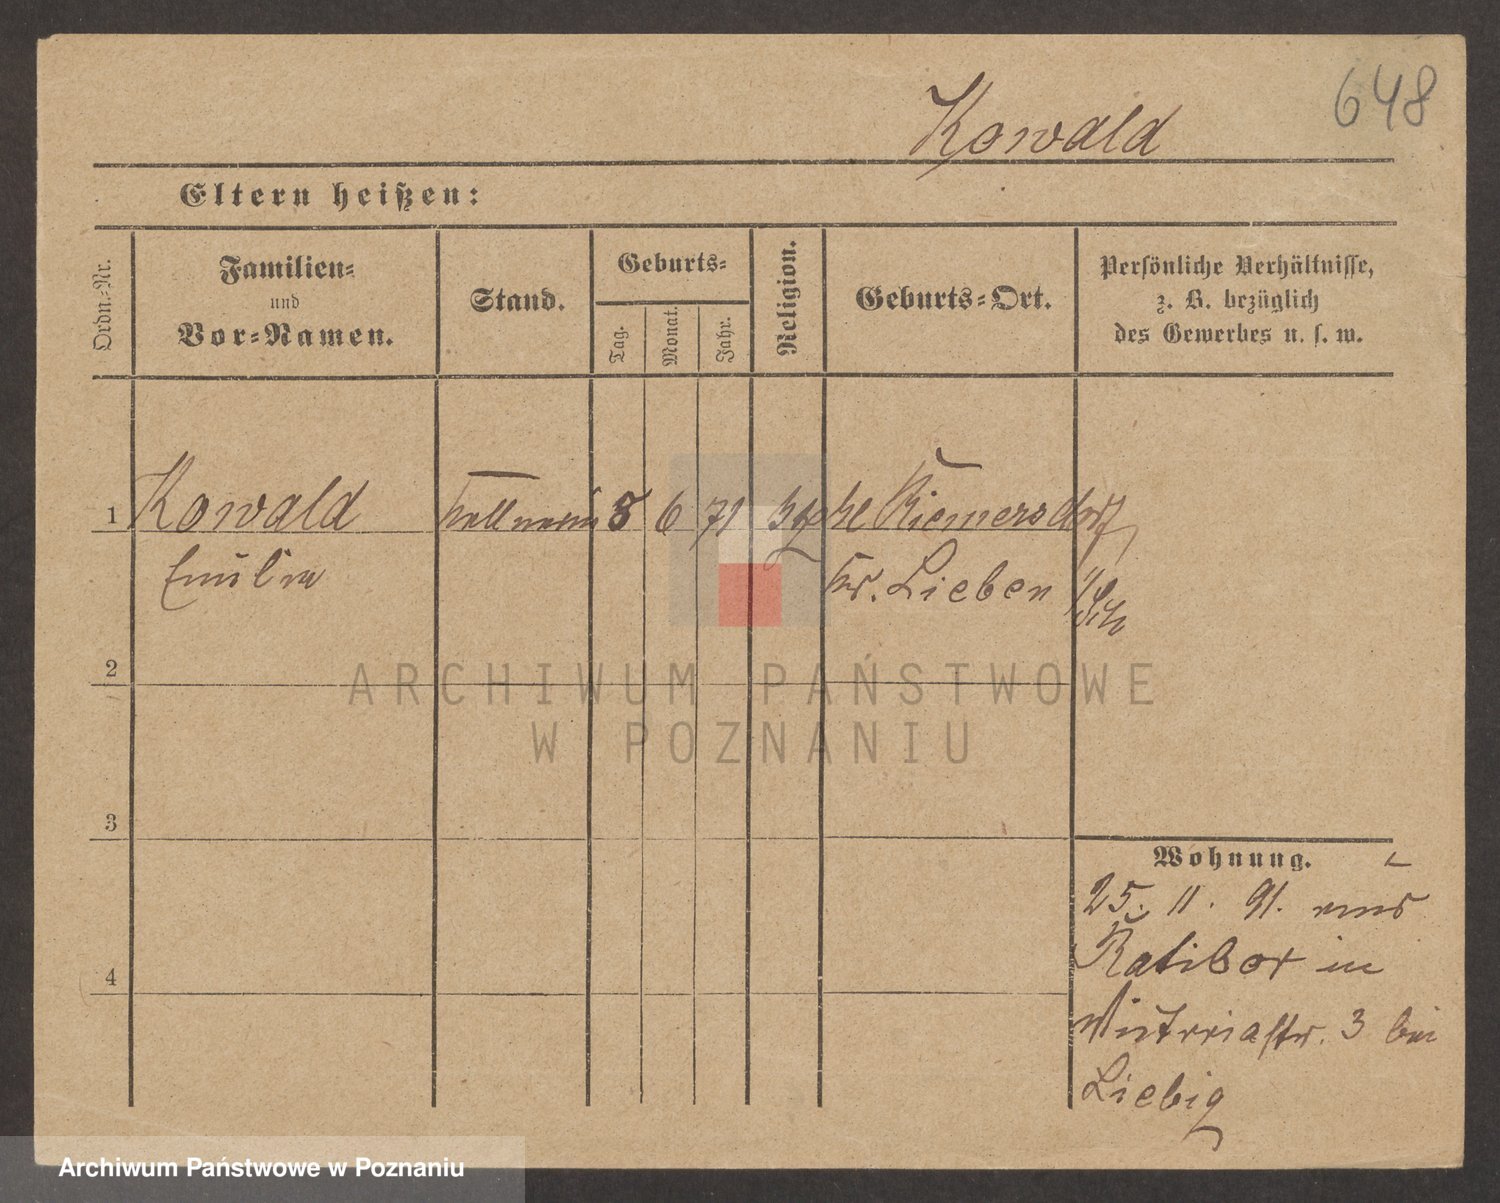 648
Kowald
Eltern heißen:
Ordn.-Nr.
Familien-
und
Vor-Namen.
Stand.
Geburts-
Tag.
Monat.
Jahr.
Religion.
Geburts-Ort.
Persönliche Verhältnisse,
z. B. bezüglich
des Gewerbes u. s. w.
1 Kowald Kellnerin 8 6 71 Riemersdorf
Kr. Lieben
2
3
4
Wohnung.
25. 11. 91. aus
Ratibor in
Victoriastr. 3 bei
Liebig
ARCHIWUM PAŃSTWOWE
W POZNANIU
Archiwum Państwowe w Poznaniu